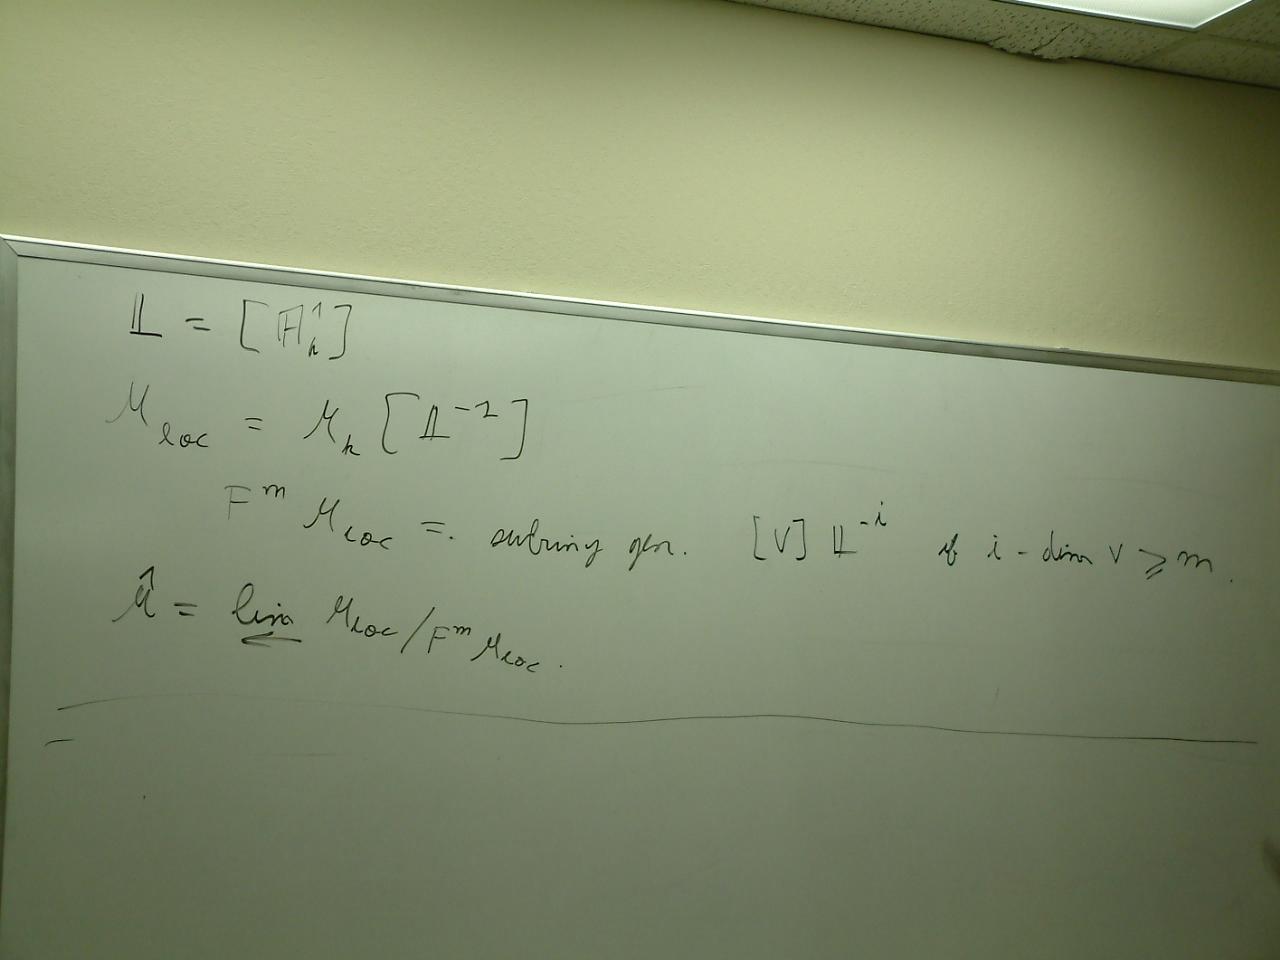 𝕃 = [𝔸¹ₖ]
ℳ_loc = ℳₖ [𝕃⁻¹]
Fᵐ ℳ_loc = subring gen. [V] 𝕃⁻ⁱ if i - dim V ⩾ m.
ℳ̂ = lim ← ℳ_loc / Fᵐ ℳ_loc.